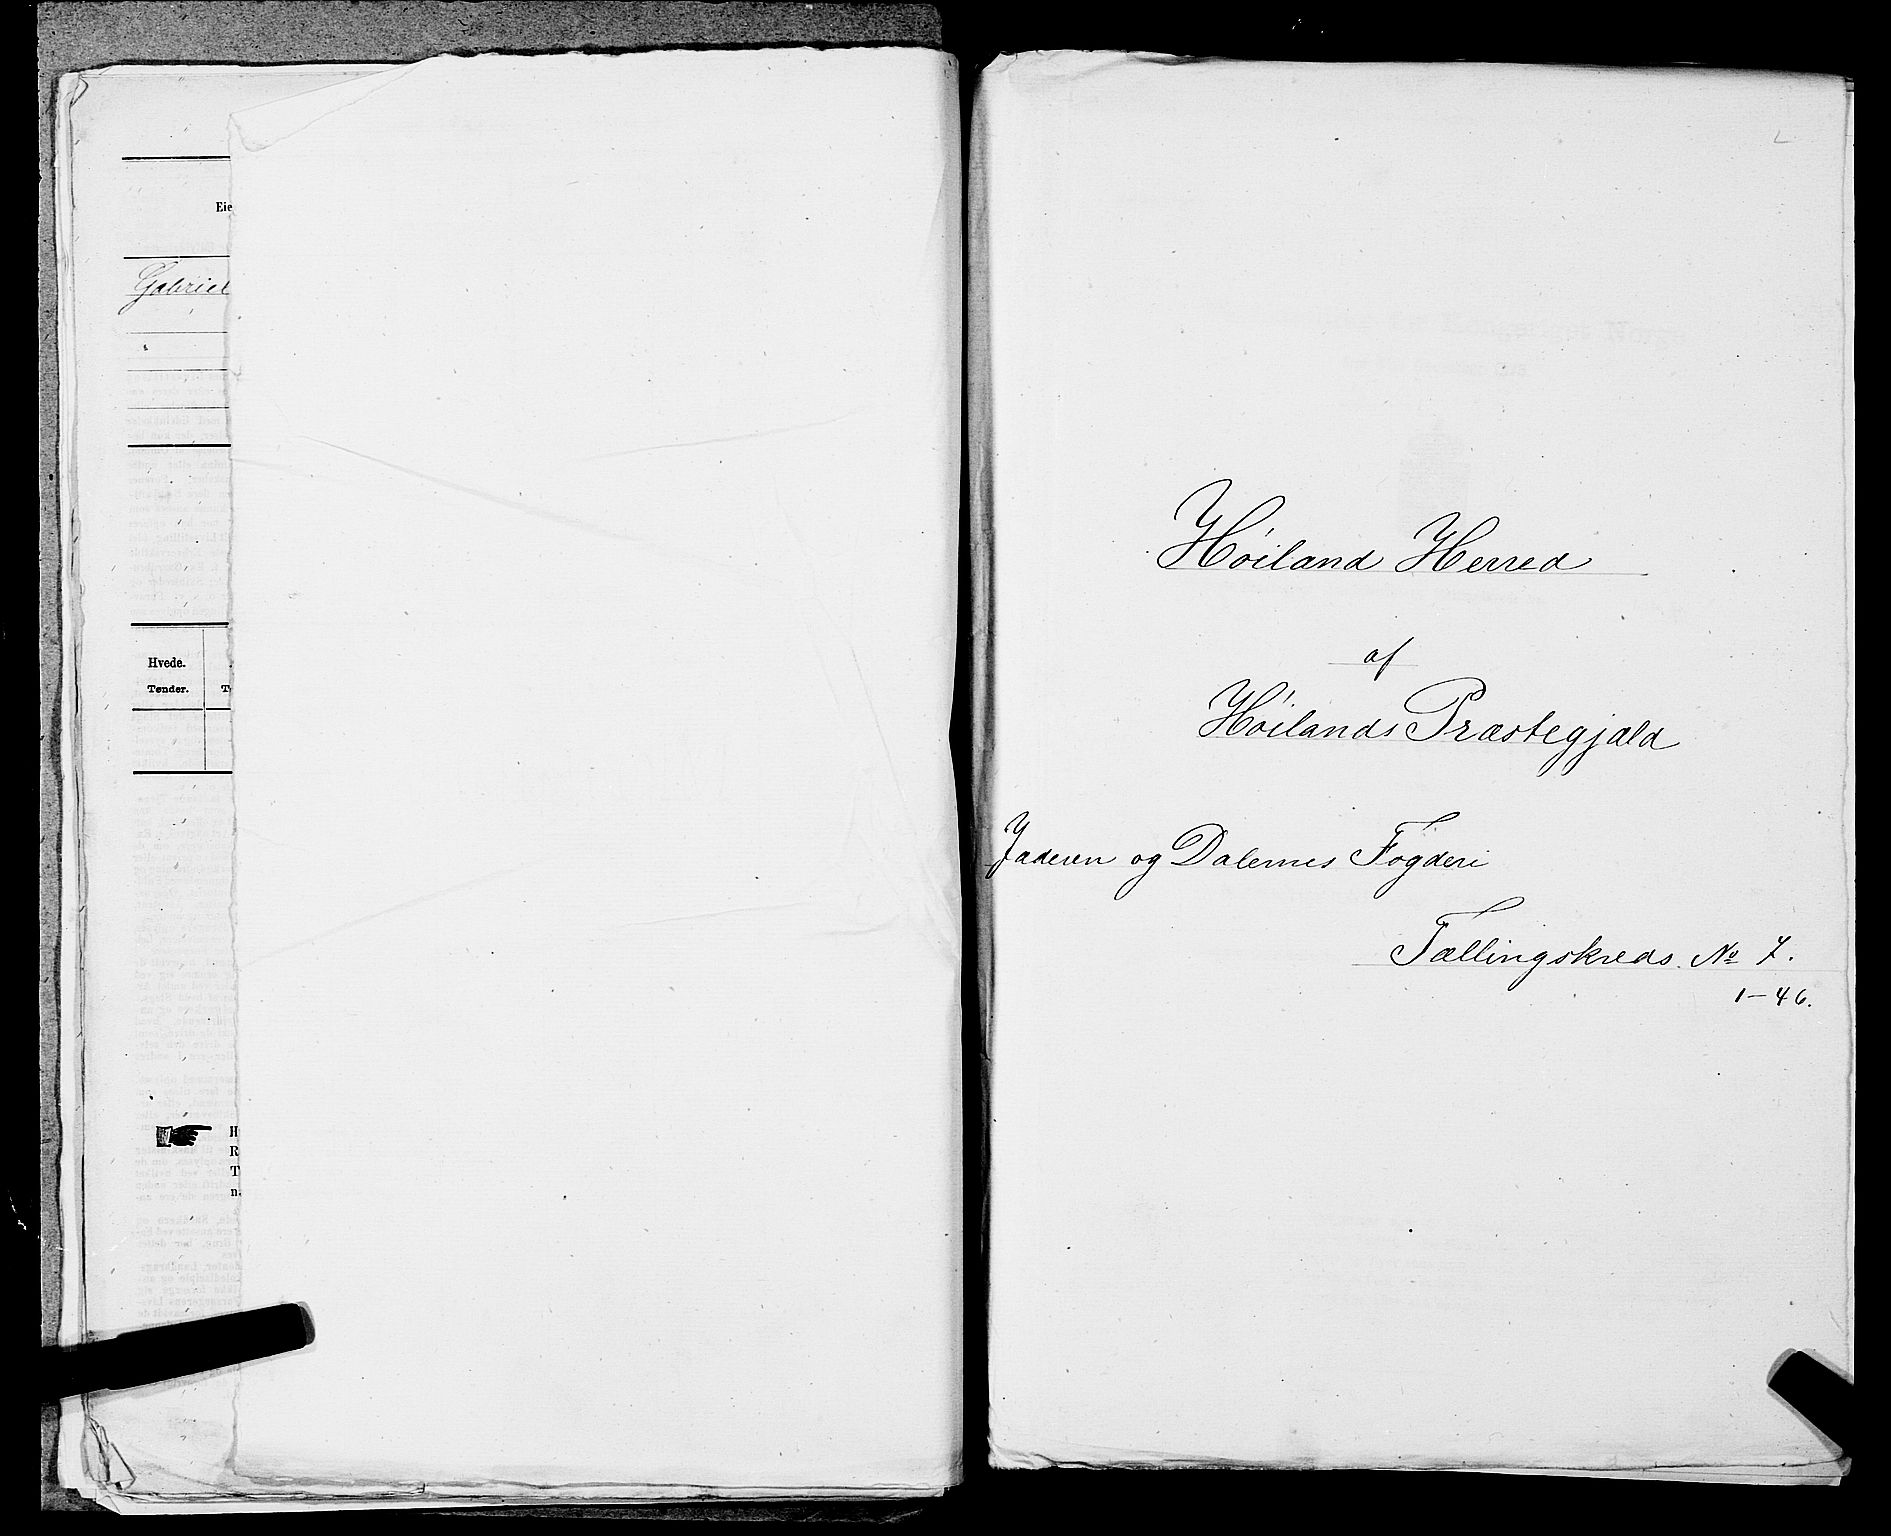 Eie
Gabriel
Hvede.
Tønder.
T
H
R
T
n
Høiland Herred
af
Høilands Præstegjæld
Jæderen og Dalernes Fogderi
Tællingskreds No 7.
1-46.